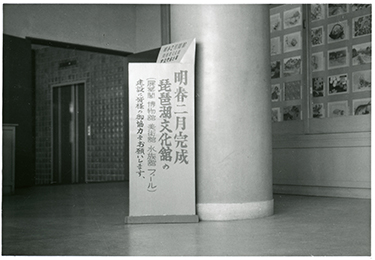 明春二月完成
琵琶湖文化館の
(展望閣 博物館 美術館 水族館 プール)
建設に皆様の御協力をお願いします。